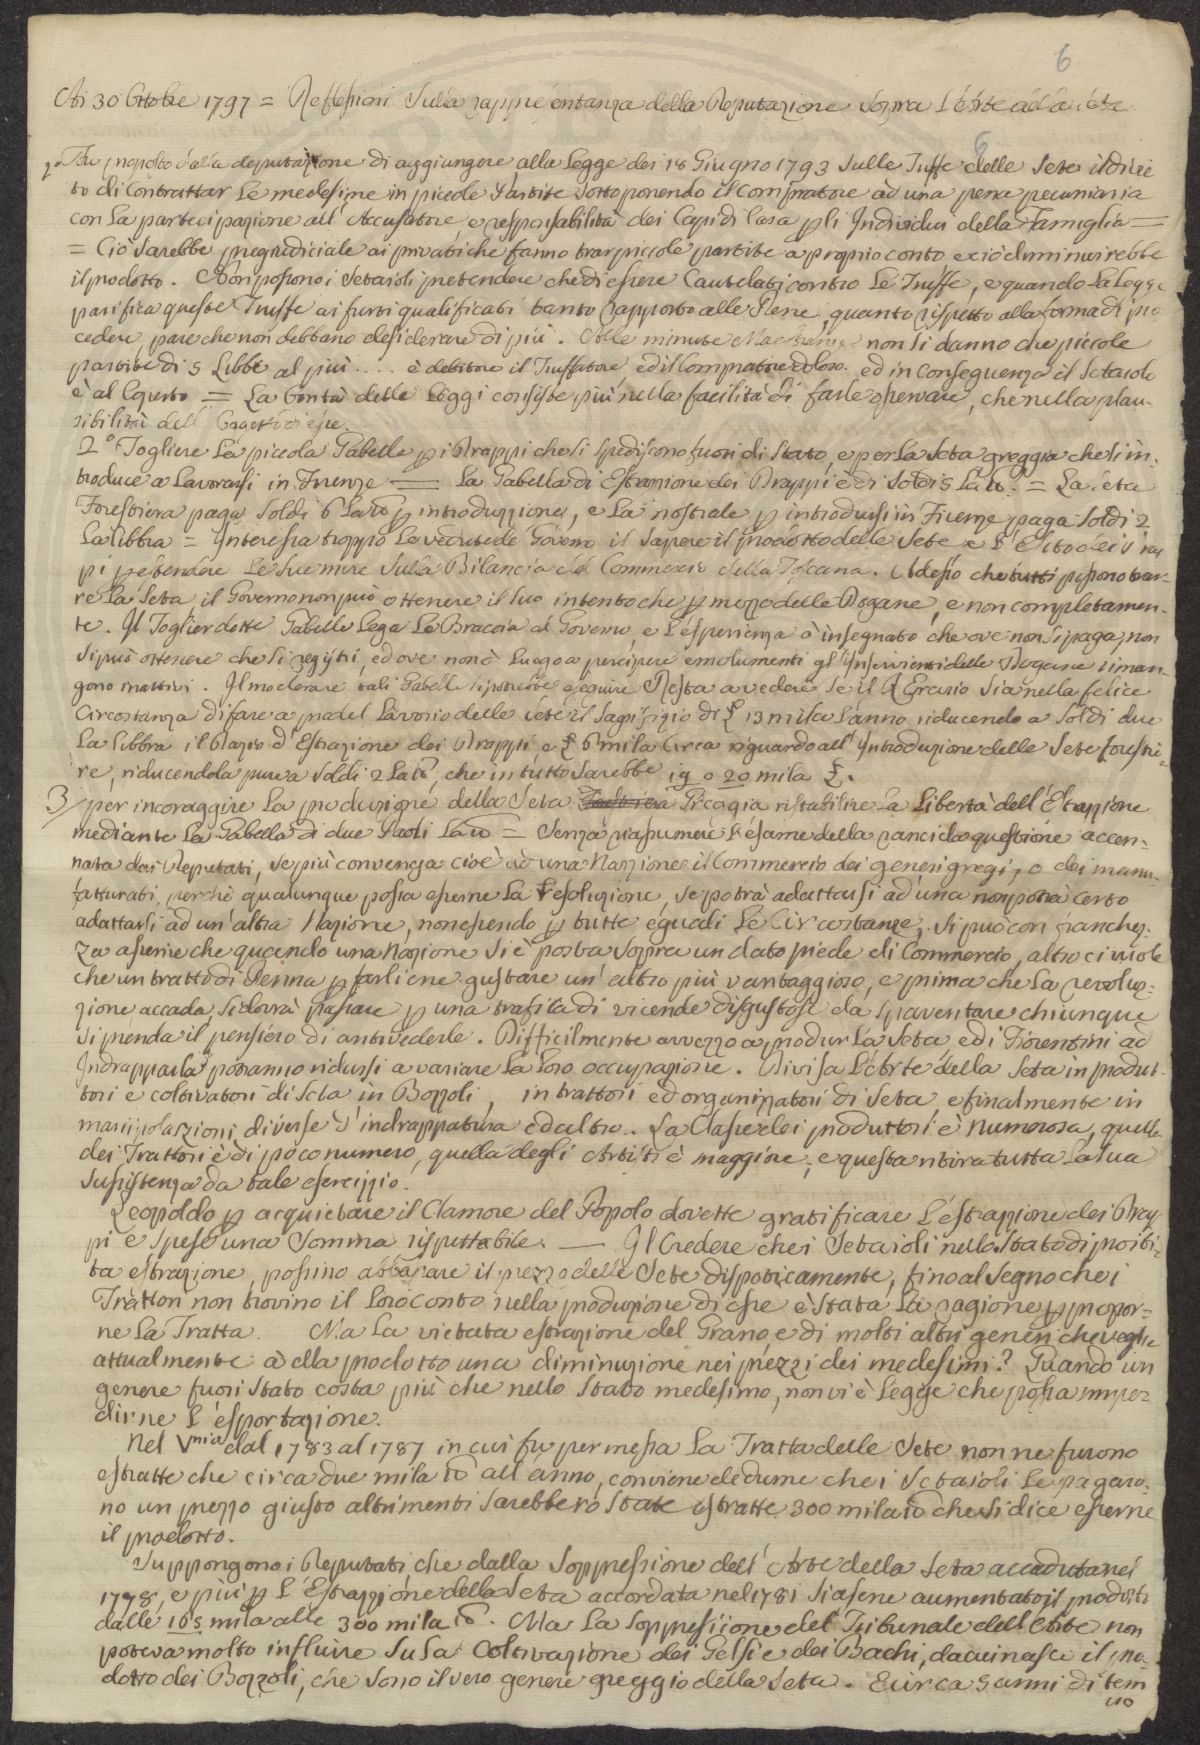 6
Ai 30 Ottobre 1797 = Reflessioni Sulla rappresentanza della Deputazione Sopra l'Arte della Seta
1° Fu proposto dalla deputazione di aggiungere alla Legge dei 18 Giugno 1793 sulle Truffe delle Sete il divie
to di Contrattar Le medesime in piccole Partite Sottoponendo il Compratore ad una pena pecuniaria
con La partecipazione all'Accusatore, e responsabilità dei Capi di Casa p gli Individui della Famiglia =
= Ciò Sarebbe pregiudiciale ai privati che fanno trar piccole partite a proprio conto, e ciò diminuirebbe
il prodotto. Non possono i Setaioli pretendere che di essere Cautelati contro Le Truffe, e quando La Legge
parifica queste Truffe ai furti qualificati tanto rapporto alle Pene, quanto rispetto alla forma di pro
cedere, pare che non debbano desiderare di più. Alle minute Maestranze non si danno che piccole
partite di 5 Libbre al più .... è debitore il Truffatore ed il Compratore doloso. ed in Conseguenza il Setaiolo
è al Coperto = La bontà delle Leggi consiste più nella facilità di farle osservare, che nella plau-
sibilità dell' Oggetto di esse.
2° Togliere La piccola Gabella p i Drappi che si spediscono fuori di Stato, e per La Seta greggia che si in-
troduce a Lavorarsi in Firenze = La Gabella di Estrazione dei Drappi è di Soldi 5 La lb. = La Seta
Forestiera paga Soldi 6 La lb p introduzione, e La nostrale p introdursi in Firenze paga Soldi 2
La libbra = Interessa troppo Le vedute del Governo il Sapere il prodotto delle Sete e l'Esito dei Drap
pi p estendere Le Sue mire Sulla Bilancia del Commercio della Toscana. Adesso che tutti possono trar-
re La Seta il Governo non può ottenere il Suo intento che p mezzo delle Dogane, e non completamen-
te. Il Toglier dette Gabelle Lega Le Braccia al Governo, e L'esperienza à insegnato che ove non Si paga, non
Si può ottenere che si registri, ed ove non è Luogo a percipere emolumenti gl'Inservienti delle Dogane riman-
gono inattivi. Il moderare tali Gabelle si potrebbe eseguire Resta a vedere Se il R Erario Sia nella felice
Circostanza di fare a pro del Lavorio delle Sete il Sagrifizio di £ 13 mila L'anno riducendo a Soldi due
La Libbra il Dazio d'Estrazione dei Drappi e £ 6 mila Circa riguardo all'Introduzione delle Sete forestie-
re, riducendola pure a Soldi 2 La lb, che in tutto Sarebbe 19 o 20 mila £.
3/ per incoraggire La produzione della Seta Greggia ristabilire La Libertà dell'Estrazione
mediante La Gabella di due Paoli La lb = Senza riassumere L'esame della rancida questione accen-
nata dai Deputati, Se più convenga cioè ad una Nazione il Commercio dei generi gregi, o dei manu-
fatturati, perchè qualunque possa esserne La resoluzione, Se potrà adattarsi ad una non potrà certo
adattarsi ad un'altra Nazione, non essendo p tutte eguali Le Circostanze, Si può con franchez-
za asserire che quando una Nazione Si è posta Sopra un dato piede di Commercio, altro ci vuole
che un tratto di Penna p farliene gustare un'altro più vantaggioso, e prima che La revolu-
zione accada, Si dovrà passare p una trafila di vicende disgustose da spaventare chiunque
Si prenda il pensiero di antivederle. Difficilmente avvezzo a produr La Seta, ed i Fiorentini ad
Indrapparla potranno ridursi a variare La Loro occupazione. Divisa L'Arte della Seta in produt-
tori e coltivatori di Seta in Bozzoli, in trattori ed organizzatori di Seta, e finalmente in
manipolazioni diverse d'indrappatura ed altro.. La Classe dei produttori è numerosa, quella
dei Trattori è di poco numero, quella degli Artisti è maggiore, e questa ritira tutta La Sua
Sussistenza da tale esercizio.
Leopoldo p acquietare il Clamore del Popolo dovette gratificare L'estrazione dei Drap
pi e Spese una Somma rispettabile. — Il Credere che i Setaioli nello Stato di proibi-
ta estrazione, possino abbassare il prezzo delle Sete dispoticamente, fino al Segno che i
Trattori non trovino il Loro conto nella produzione di esse è Stata La ragione p propor-
ne La Tratta. Ma La vietata estrazione del Grano, e di molti altri generi che veglia
attualmente à ella prodotto una diminuzione nei prezzi dei medesimi? Quando un
genere fuori Stato costa più che nello Stato medesimo, non vi è Legge che possa impe-
dirne L'esportazione.
Nel Vnio dal 1783 al 1787 in cui fu permessa La Tratta delle Sete non ne furono
estratte che circa due mila lb all'anno, conviene dedurne che i Setaioli Le pagaro-
no un prezzo giusto altrimenti Sarebbero State estratte 300 mila lb che si dice esserne
il prodotto.
Suppongono i Deputati che dalla Soppressione dell'Arte della Seta accaduta nel
1778, e più p L'Estrazione della Seta accordata nel 1781 Siasene aumentato il prodotto
dalle 165 mila alle 300 mila lb. Ma La Soppressione del Tribunale dell'Arte non
poteva molto influire Sulla Coltivazione dei Gelsi e dei Bachi, da cui nasce il pro-
dotto dei Bozzoli, che Sono il vero genere greggio della Seta. E circa 5 anni di tem
po